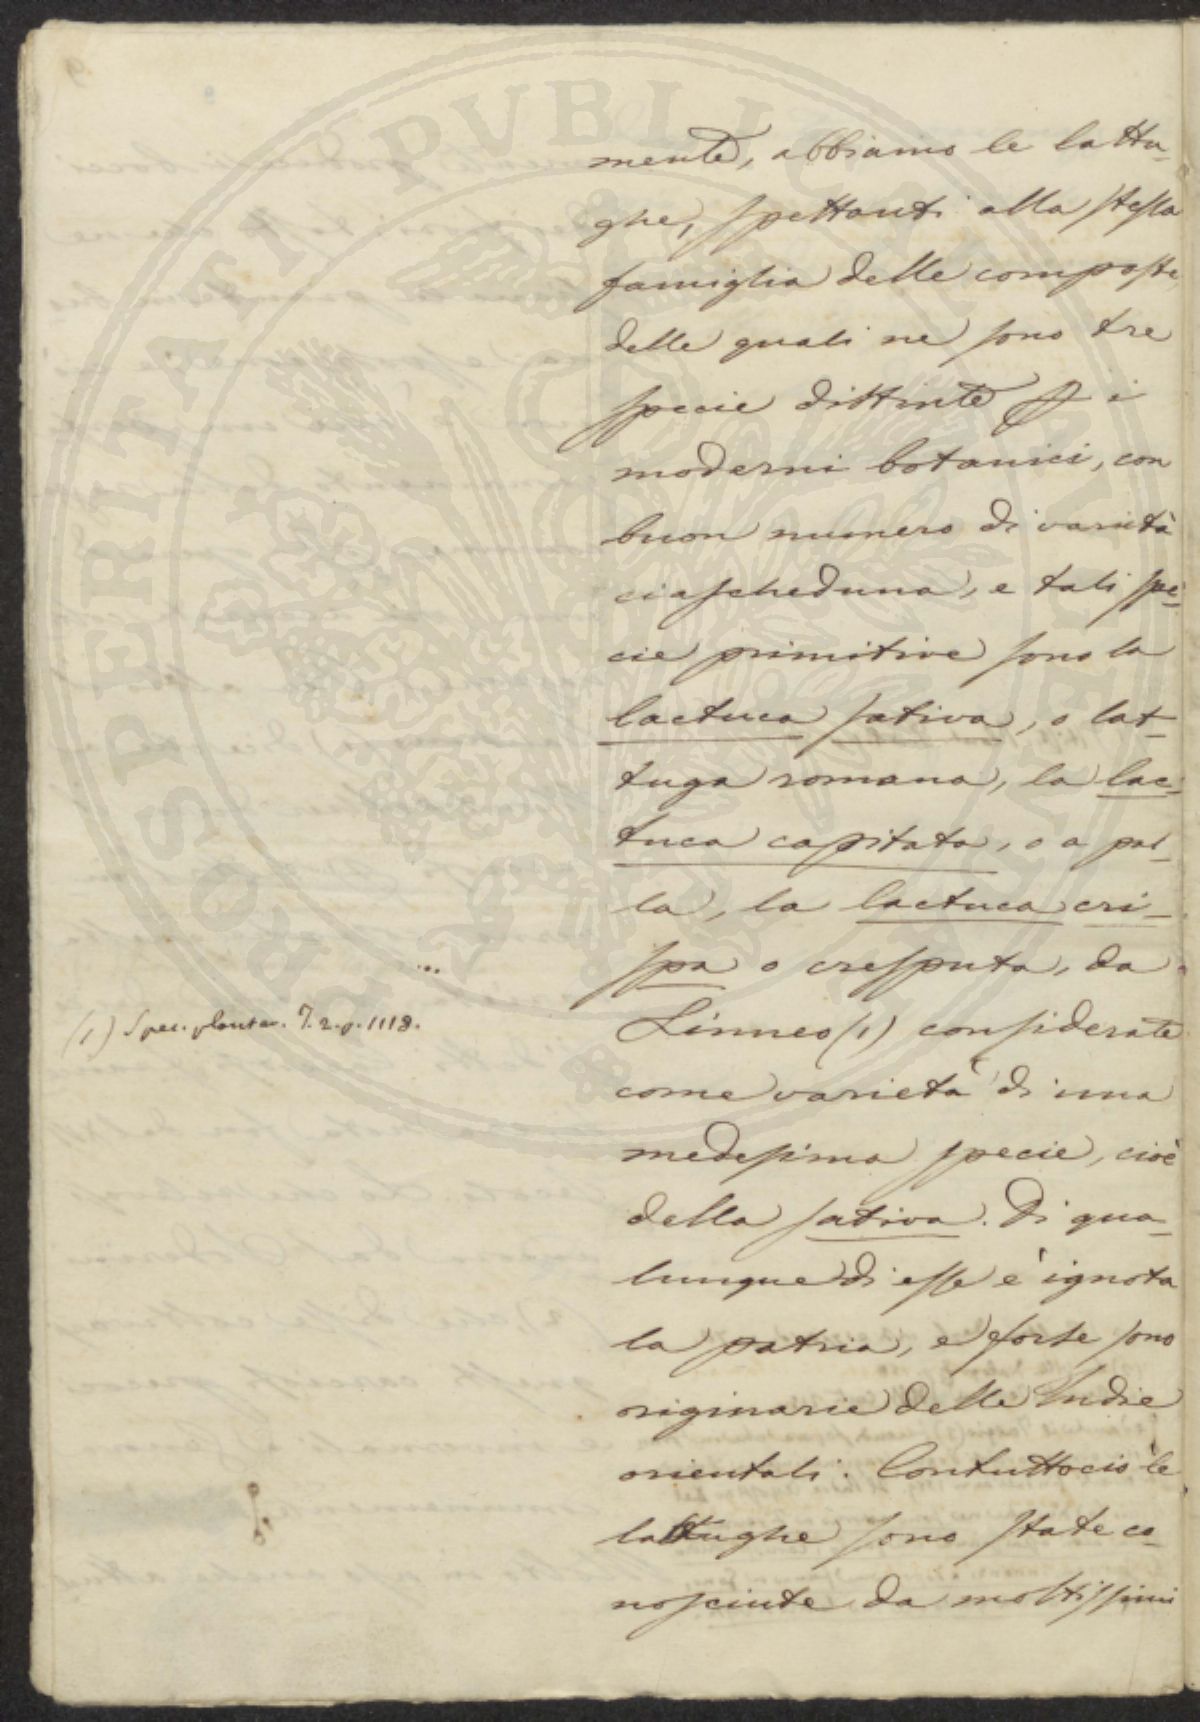 mente, abbiamo le lattu-
ghe, spettanti alla stessa
famiglia delle composte,
delle quali ne sono tre
specie distinte p i
moderni botanici, con
buon numero di varietà
ciascheduna, e tali spe-
cie primitive sono la
lactuca sativa, o lat-
tuga romana, la lac-
tuca capitata, o a pal-
la, la lactuca cri-
spa o cresputa, da
(1) Spec. plantar. T. 2. p. 1118.
Linneo (1) considerate
come varietà di una
medesima specie, cioè
della sativa. Di qua-
lunque di esse è ignota
la patria, e forse sono
originarie delle Indie
orientali. Contuttociò le
lattughe sono state co-
nosciute da moltissimi
PROSPERITATI PUBLICAE AUGENDAE